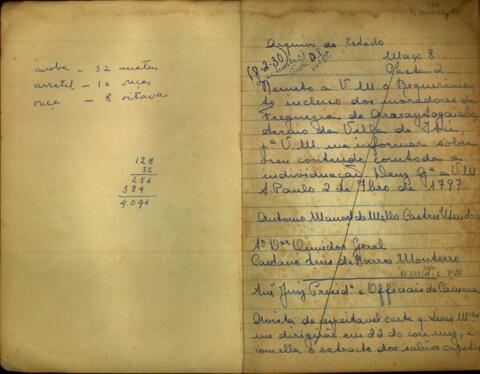 arroba - 32 arratéis
arratel - 16 onças
onça - 8 oitavas
128
32
256
384
4096
Arquivo do Estado
Maço 8
Pasta 2
(8-2-30)
Remeto a V. M. o Requerimen
to incluso dos moradores da
Freguezia de Araraytaguaba
Termo da Villa de Itu,
pª V. M. me informar sobre
seu conteudo com toda a
individuação. Deus gª a V M
S. Paulo 2 de 7bro de 1797
Antonio Manoel de Mello Castro e Mendonça
Sr Dor Ouvidor Geral
Caetano Luis de Barros Monteiro
Juiz Presidᵉ e Officiais da Camara
A vista da respeitavel carta q.
me dirigiu em 22 do cor. mez, e
com ella o extracto dos sabios